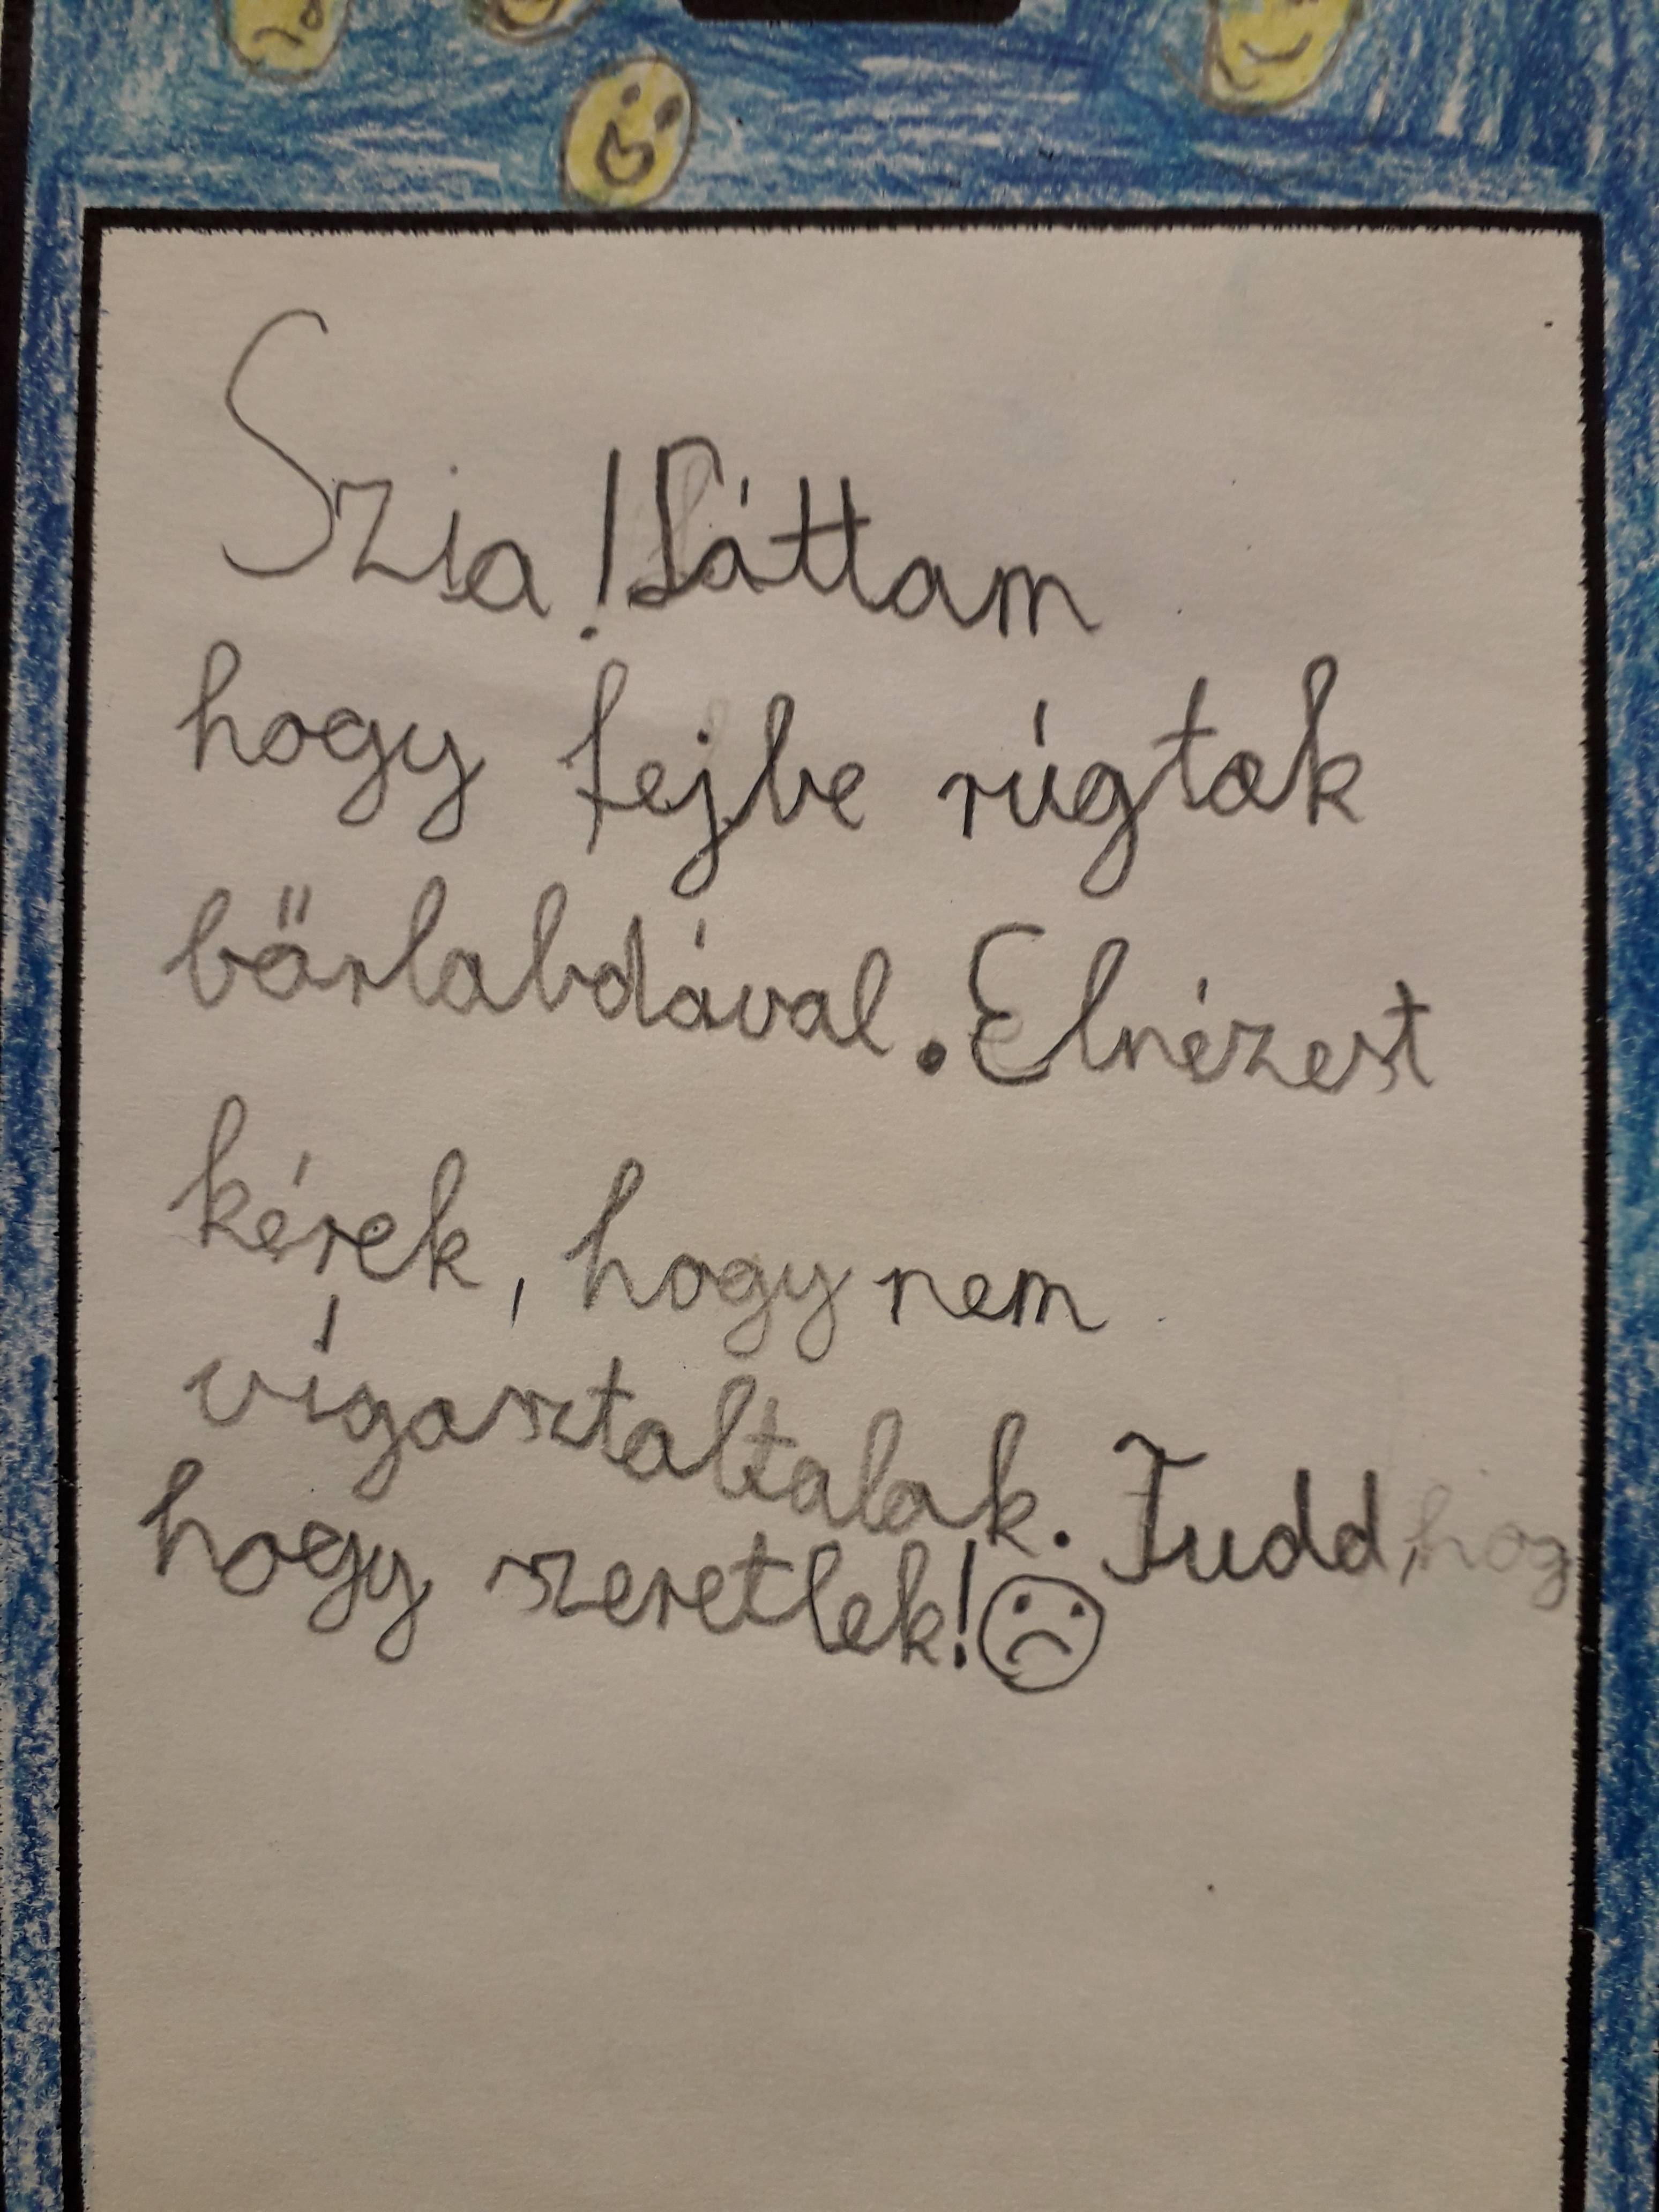 Szia! Láttam
hogy fejbe rúgtak
bőrlabdával. Elnézest
kérek, hogy nem
vígasztaltalak. Tudd, hog
hogy szeretlek!